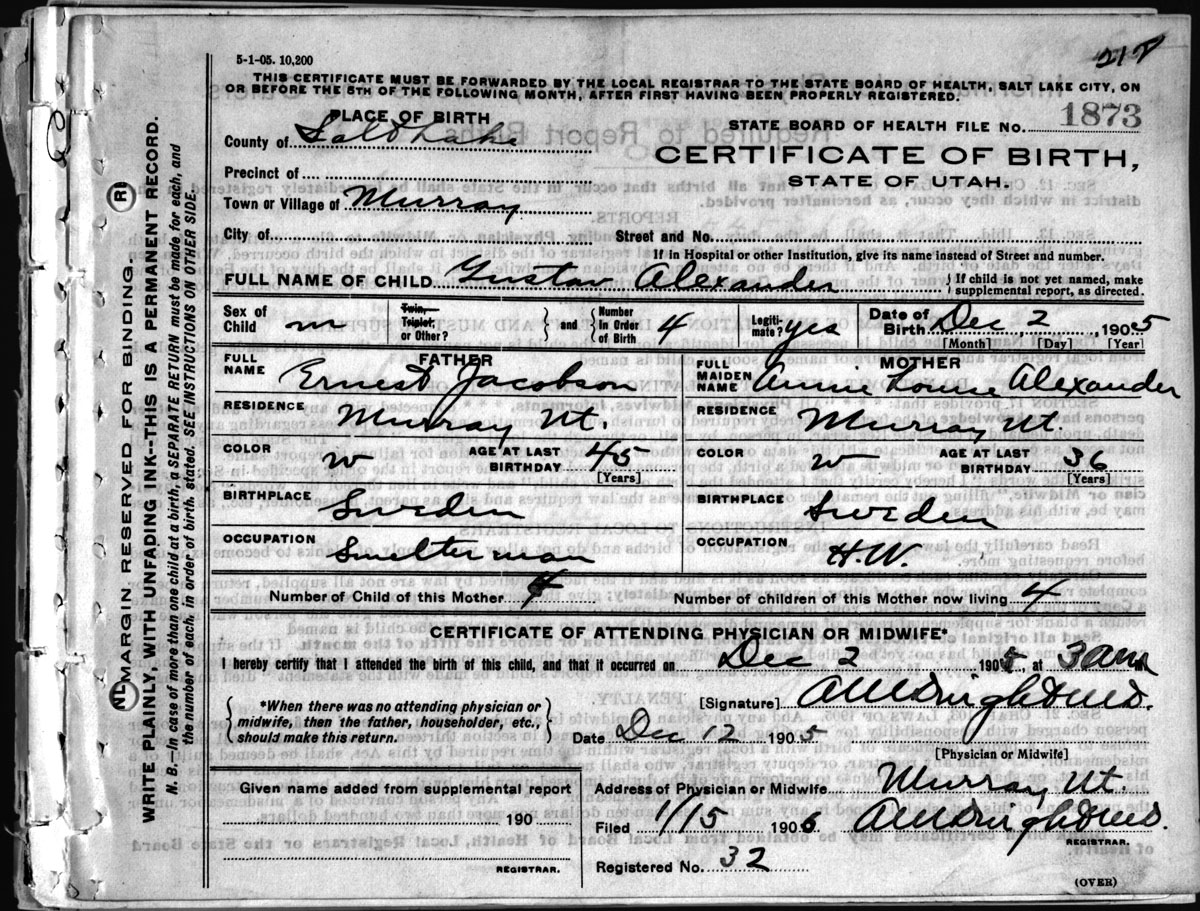 5-1-05. 10,200
218
THIS CERTIFICATE MUST BE FORWARDED BY THE LOCAL REGISTRAR TO THE STATE BOARD OF HEALTH, SALT LAKE CITY, ON
OR BEFORE THE 5TH OF THE FOLLOWING MONTH, AFTER FIRST HAVING BEEN PROPERLY REGISTERED.
PLACE OF BIRTH
STATE BOARD OF HEALTH FILE No. 1873
County of Salt Lake
CERTIFICATE OF BIRTH,
Precinct of
STATE OF UTAH.
Town or Village of Murray
City of
Street and No.
If in Hospital or other Institution, give its name instead of Street and number.
FULL NAME OF CHILD Gustav Alexander { If child is not yet named, make
supplemental report, as directed.
Sex of Child m Twin, Triplet, or Other? } and { Number in Order of Birth 4 Legiti-mate? yes Date of Birth Dec 2 1905
[Month] [Day] [Year]
FATHER
FULL NAME Ernest Jacobson
MOTHER
FULL MAIDEN NAME Annie Louise Alexander
RESIDENCE Murray Ut.
RESIDENCE Murray Ut.
COLOR w AGE AT LAST BIRTHDAY 45 [Years]
COLOR w AGE AT LAST BIRTHDAY 36 [Years]
BIRTHPLACE Sweden
BIRTHPLACE Sweden
OCCUPATION Smelter man
OCCUPATION H.W.
Number of Child of this Mother 4 Number of children of this Mother now living 4
CERTIFICATE OF ATTENDING PHYSICIAN OR MIDWIFE*
I hereby certify that I attended the birth of this child, and that it occurred on Dec 2 1905 at 3 am
[Signature]
{ *When there was no attending physician or
midwife, then the father, householder, etc.,
should make this return. }
Date Dec 12 1905
[Physician or Midwife]
Given name added from supplemental report
190
REGISTRAR.
Address of Physician or Midwife Murray Ut.
Filed 1/15 1906
REGISTRAR.
Registered No. 32
(OVER)
MARGIN RESERVED FOR BINDING.
WRITE PLAINLY, WITH UNFADING INK--THIS IS A PERMANENT RECORD.
N. B.—In case of more than one child at a birth, a SEPARATE RETURN must be made for each, and
the number of each, in order of birth, stated. SEE INSTRUCTIONS ON OTHER SIDE.